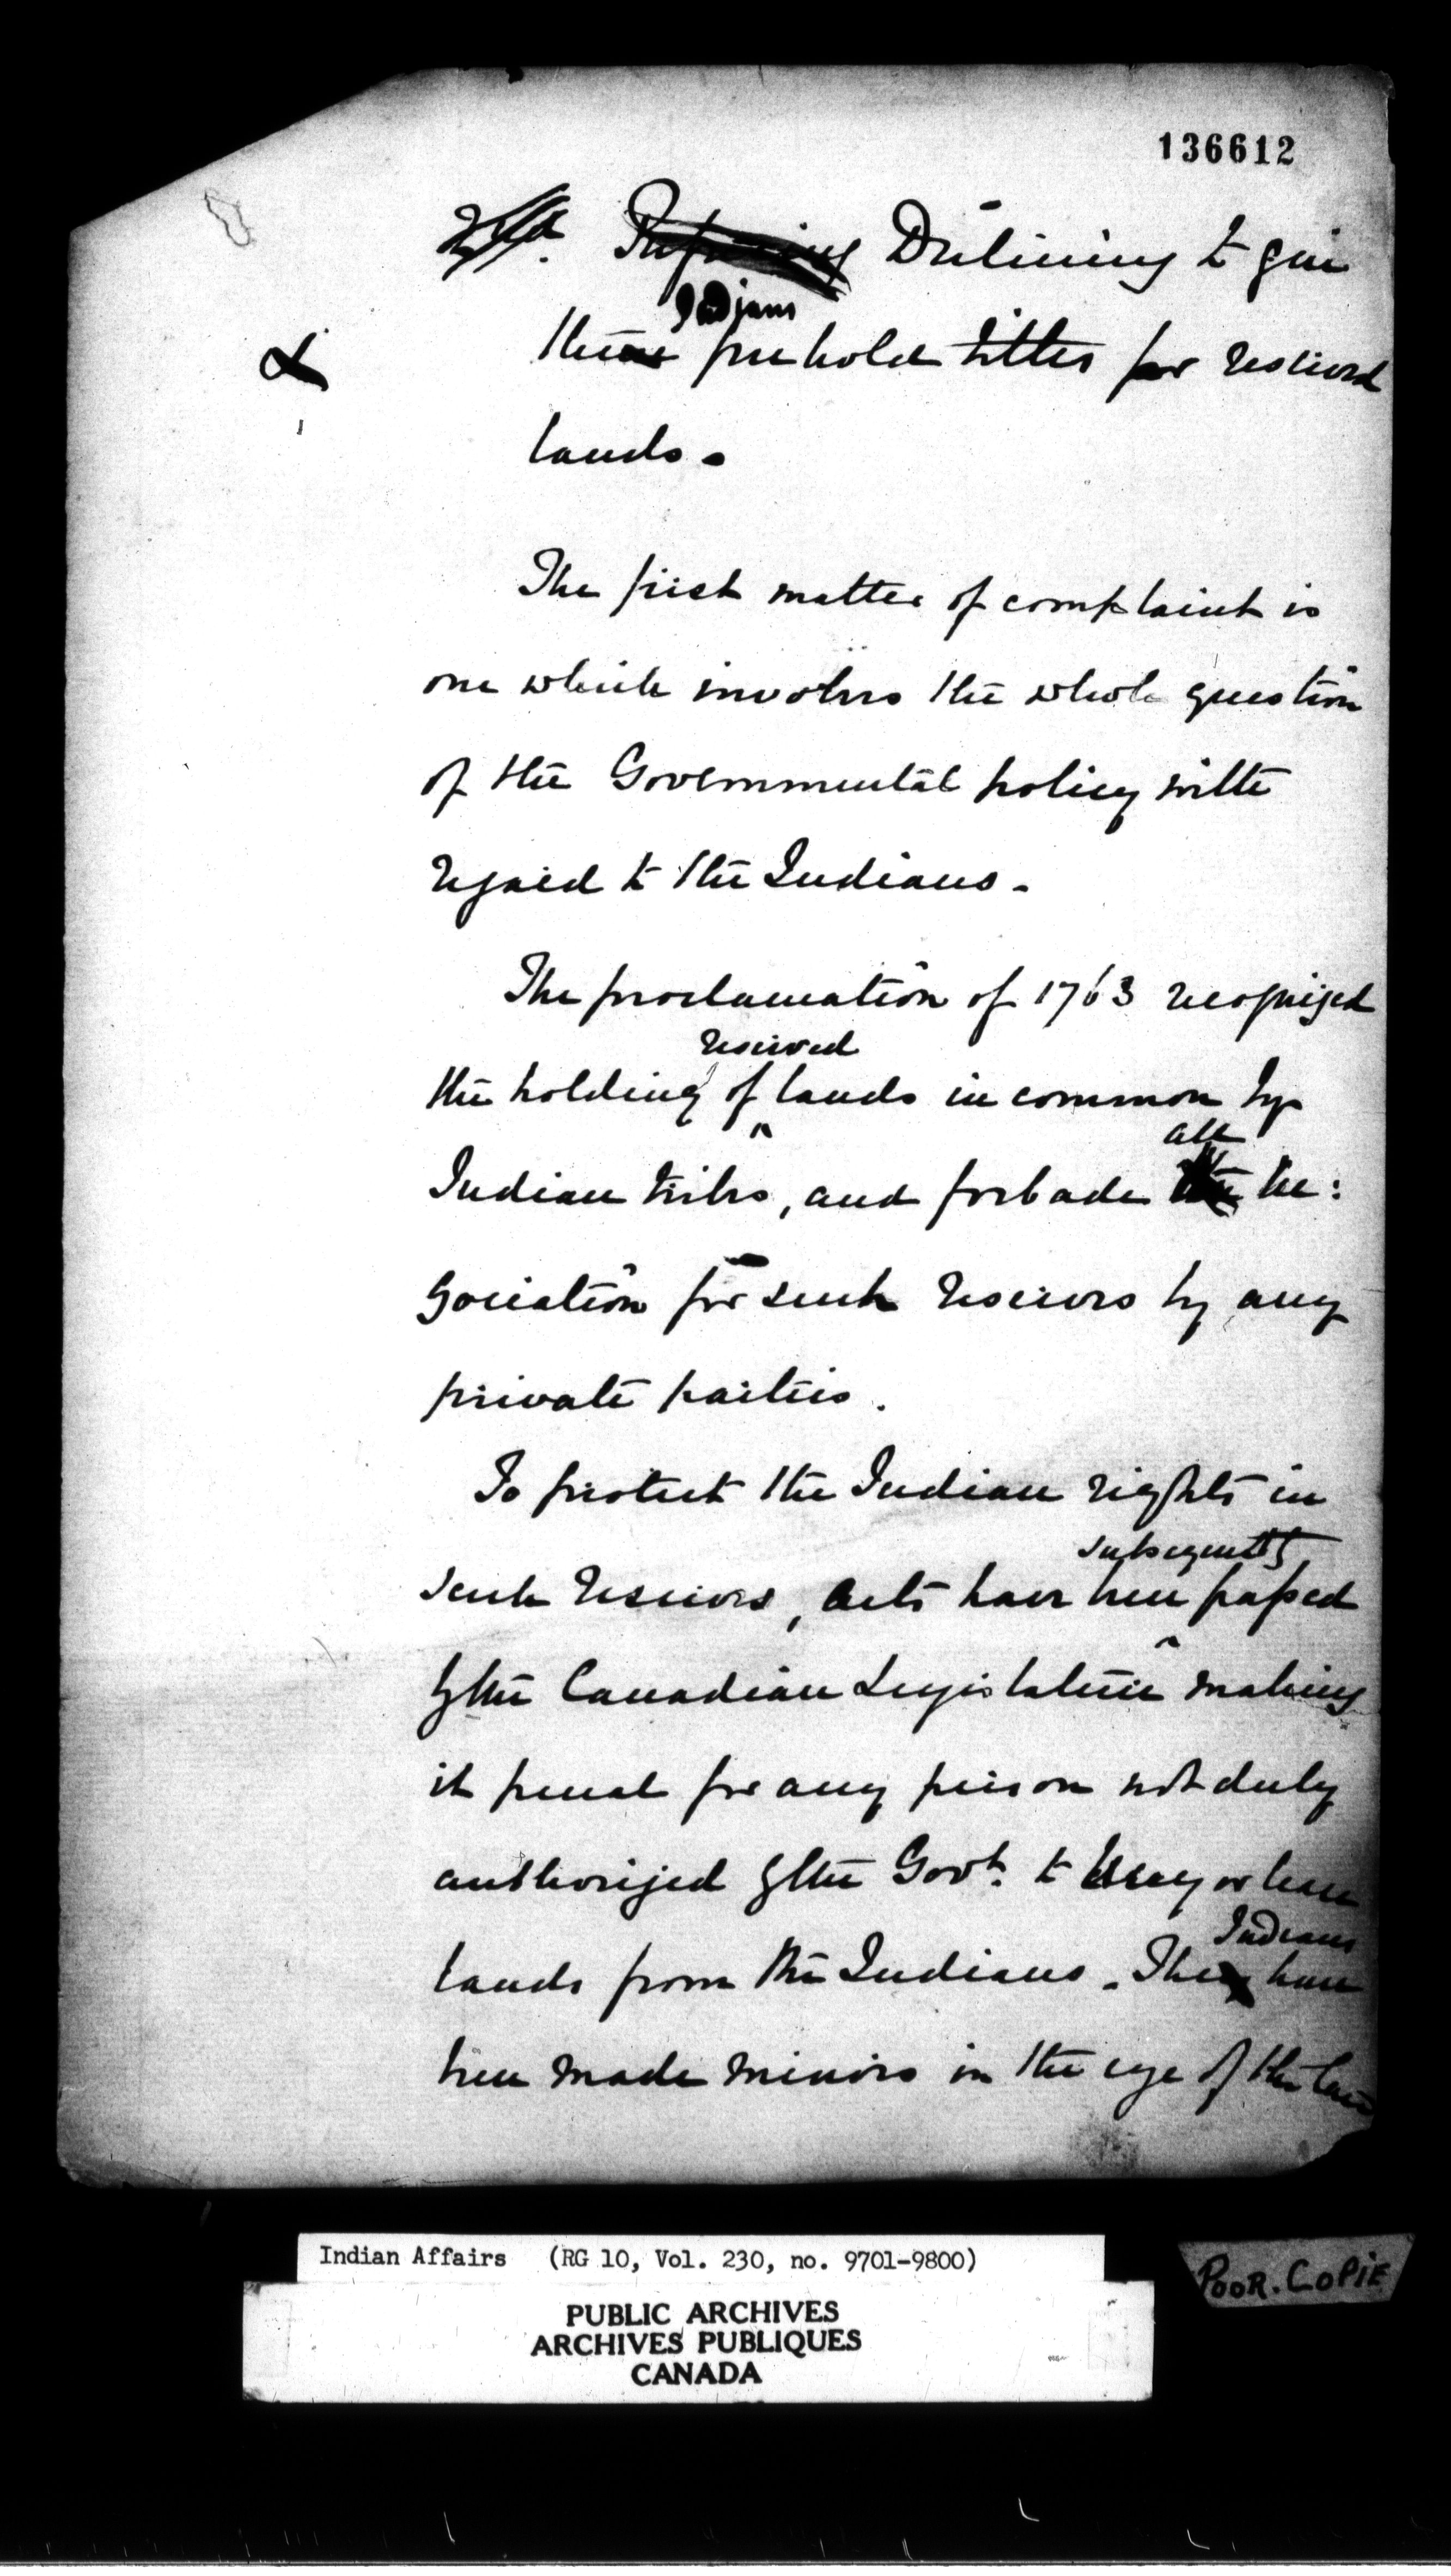 136612
2nd. Refusing Declining to give
Indians
the freehold titles for reserved
lands.
The first matter of complaint is
one which involves the whole question
of the Governmental policy with
regard to the Indians.
The proclamation of 1763 recognized
reserved
the holding of ^ lands in common by
all
Indian tribes, and forbade the ne:
gociation for such reserves by any
private parties.
To protect the Indian rights in
subsequently
such reserves, acts have been passed
by the Canadian Legislature ^ making
it penal for any person not duly
authorized by the Govt. to buy or lease
Indians
lands from the Indians. They have
been made minors in the eye of the law
Indian Affairs (RG 10, Vol. 230, no. 9701-9800)
POOR. COPIE
PUBLIC ARCHIVES
ARCHIVES PUBLIQUES
CANADA